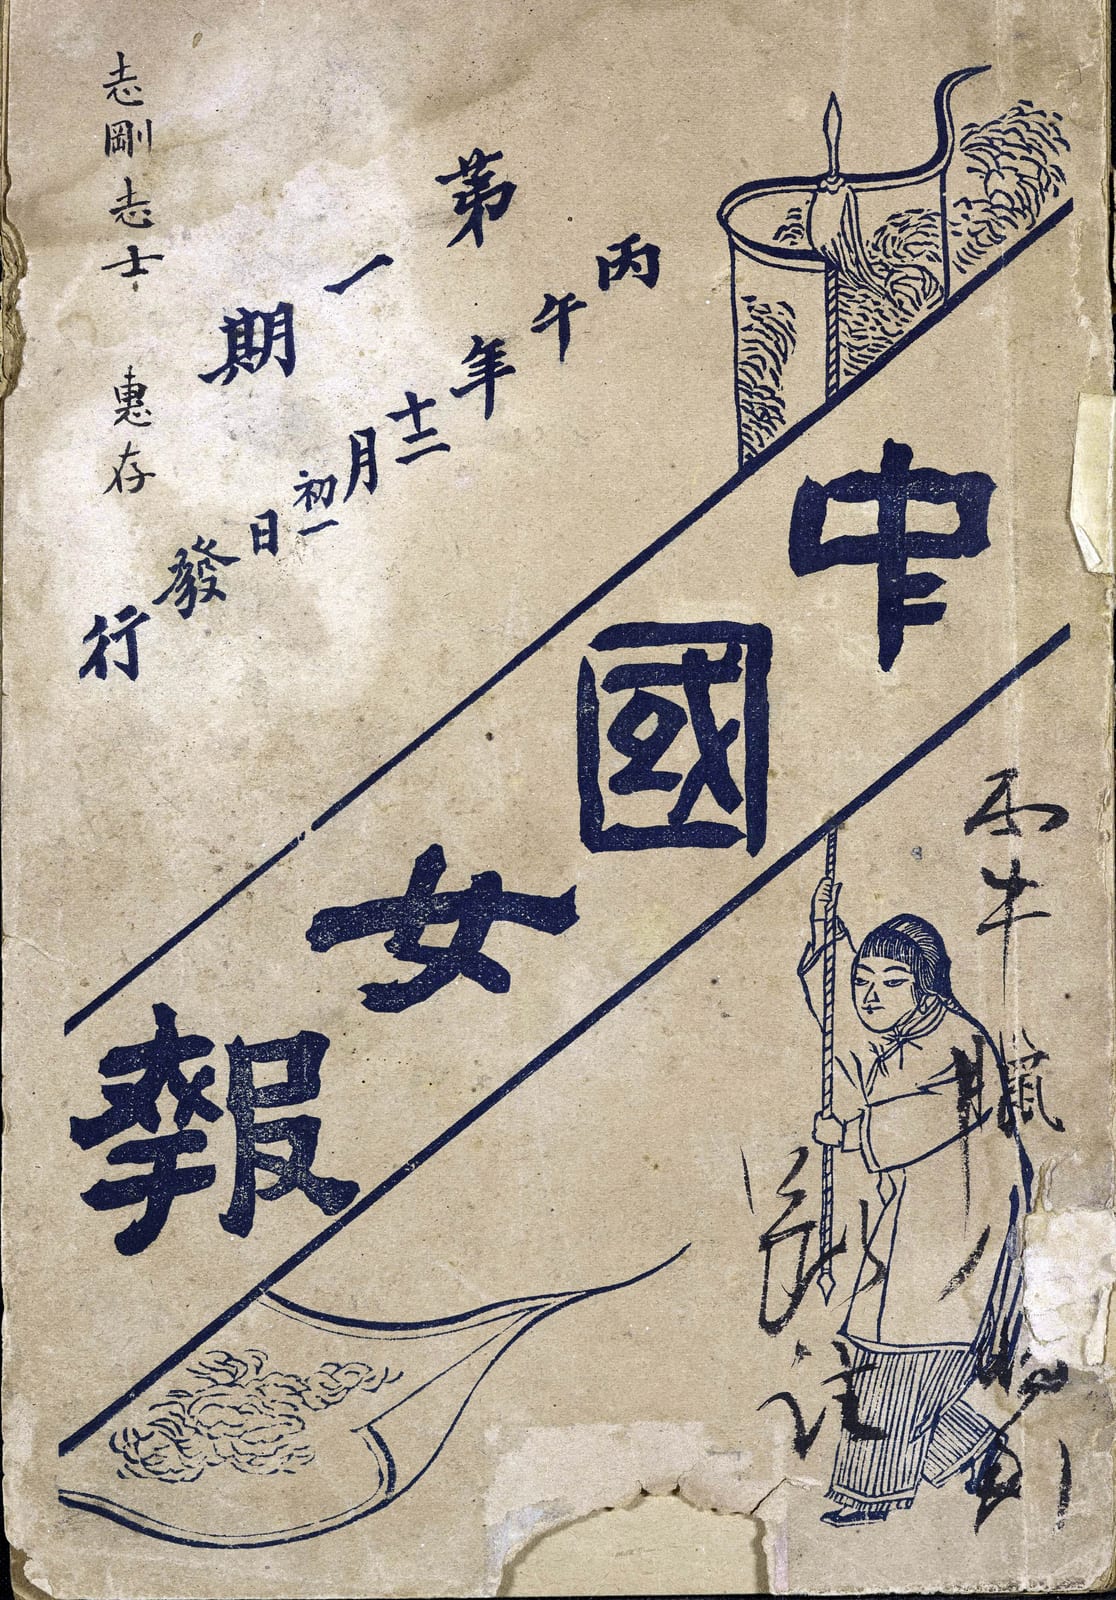 中國女報
丙午年十二月初一日發行
第一期
志剛志士 惠存
丙午臘